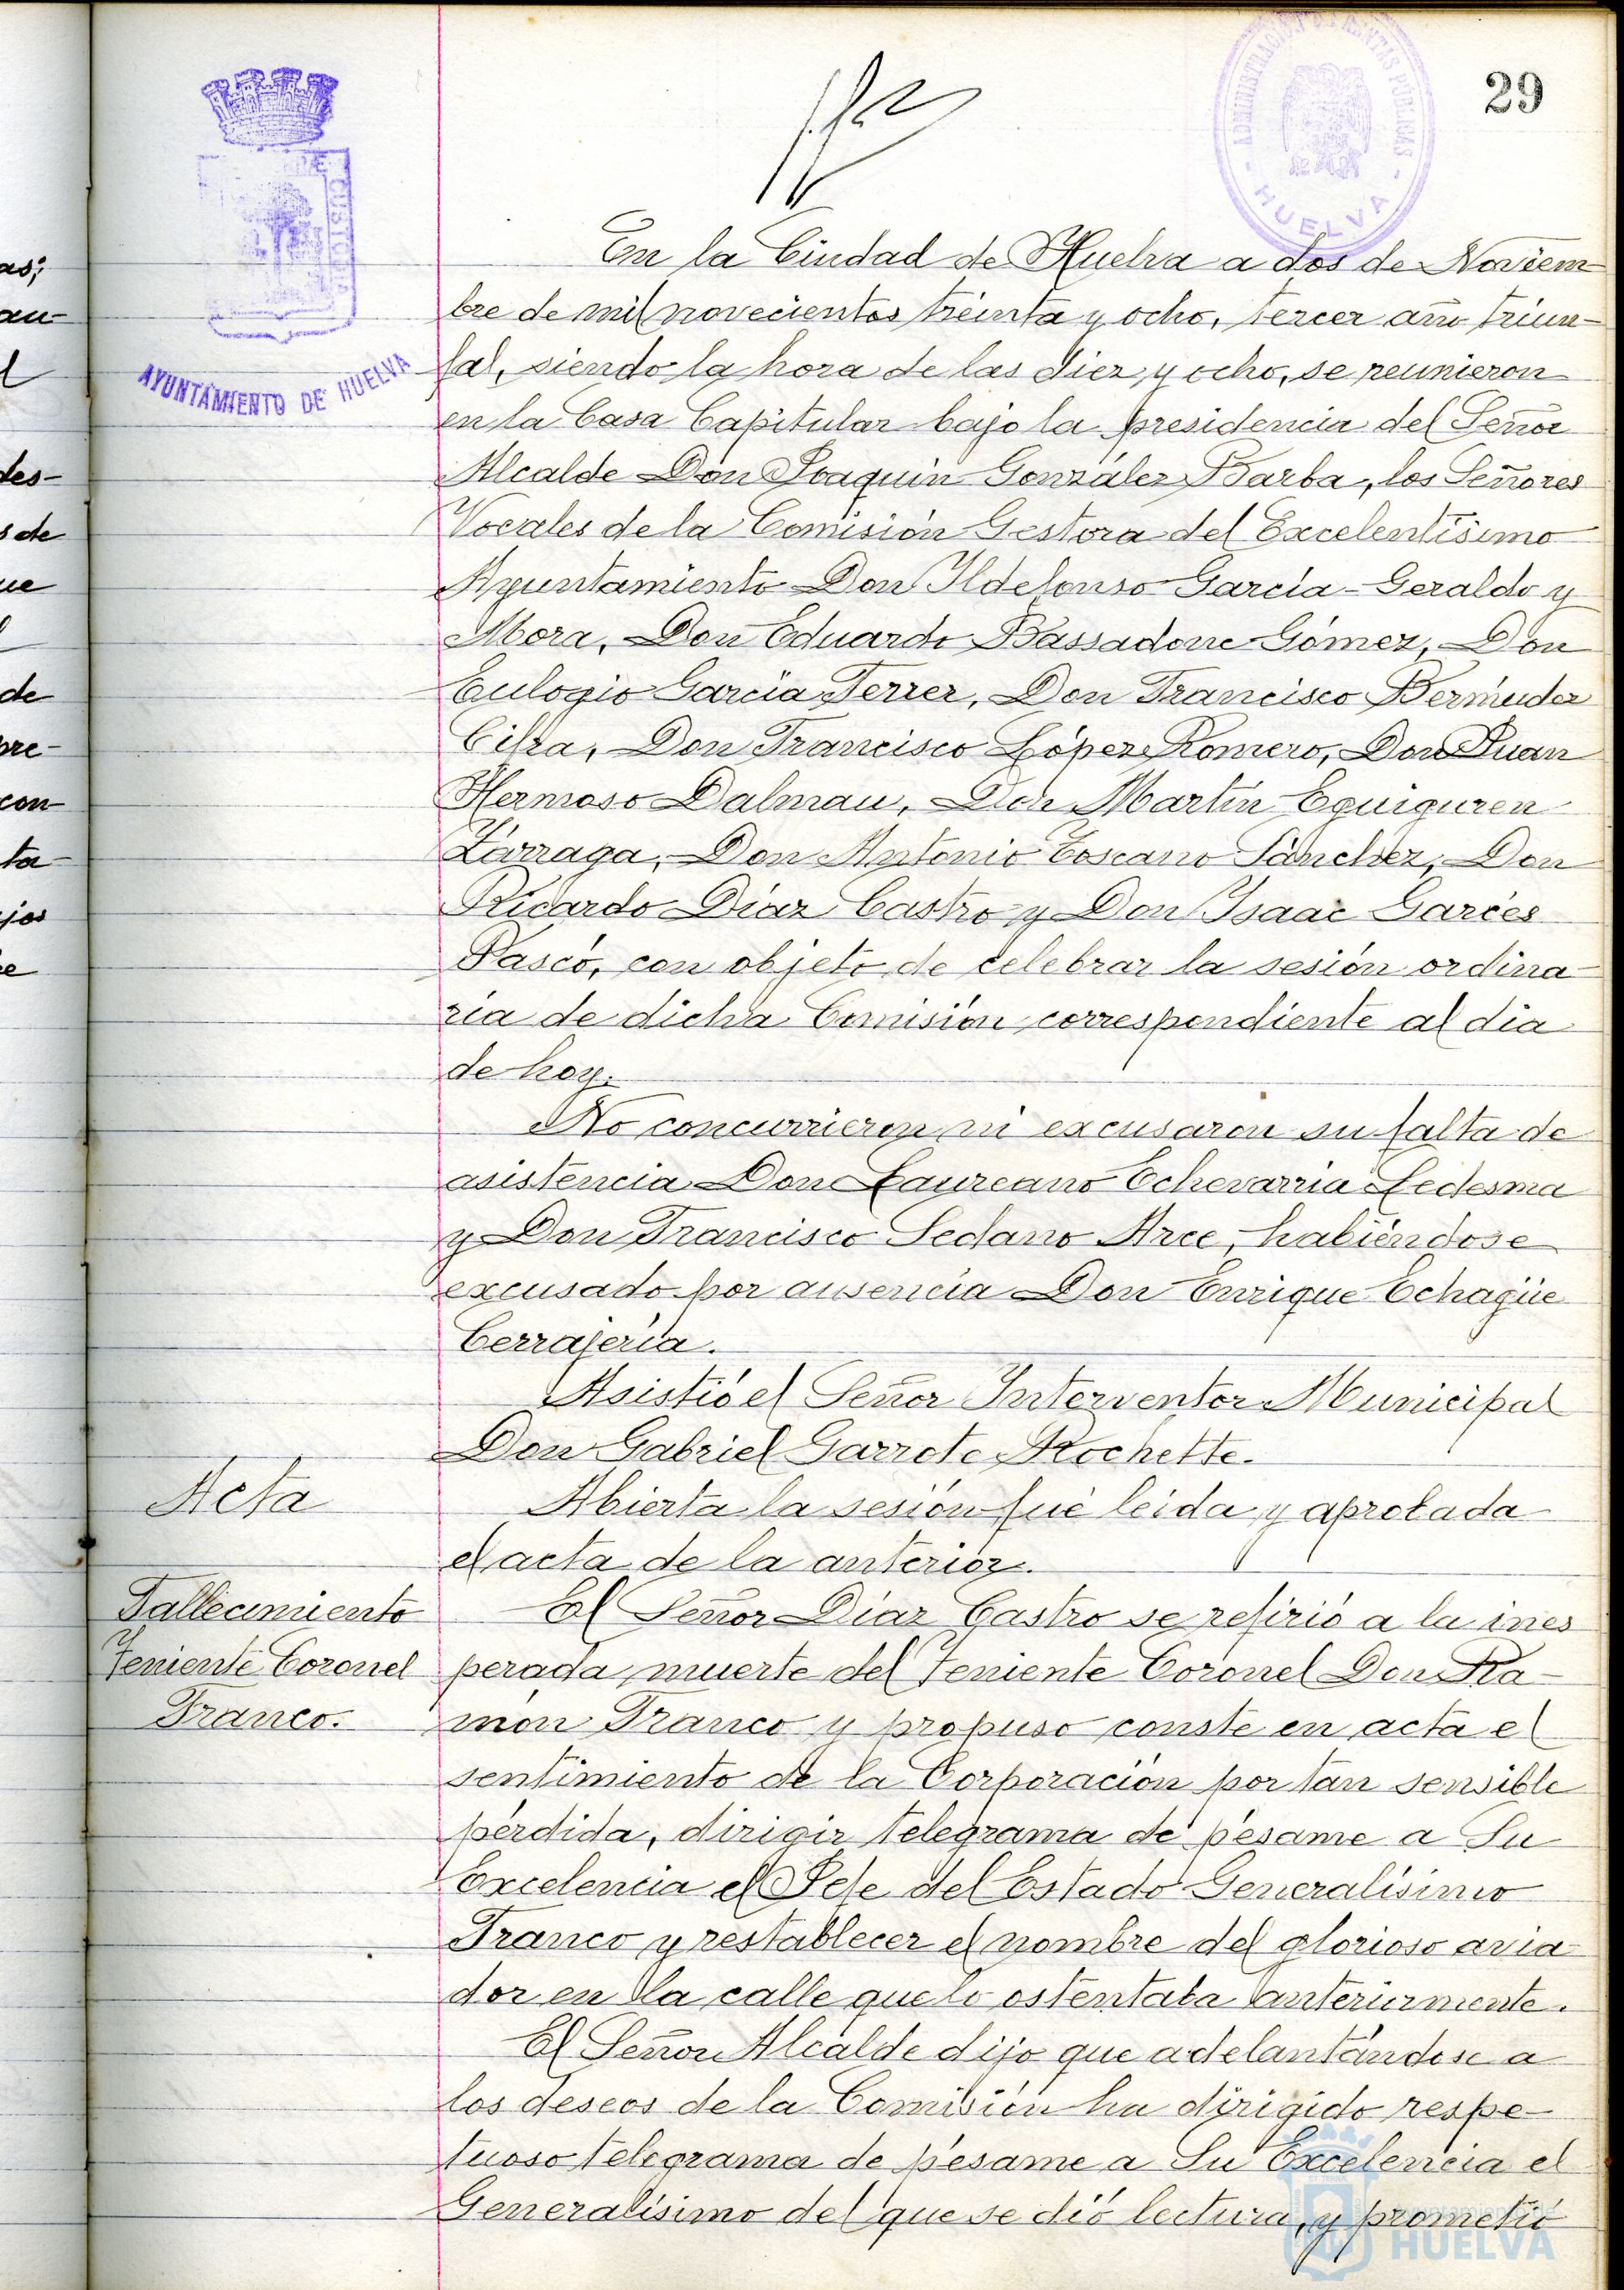 29
ADMINISTRACIÓN DE RENTAS PÚBLICAS
- HUELVA -
CUSTODIA
AYUNTAMIENTO DE HUELVA
En la Ciudad de Huelva a dos de Noviem-
bre de mil novecientos treinta y ocho, tercer año triun-
fal, siendo la hora de las diez y ocho, se reunieron
en la Casa Capitular bajo la presidencia del Señor
Alcalde Don Joaquin González Barba, los Señores
Vocales de la Comisión Gestora del Excelentísimo
Ayuntamiento Don Ildefonso García-Geraldo y
Mora, Don Eduardo Bassadone Gómez, Don
Eulogio García Ferrer, Don Francisco Bermudez
Cifra, Don Francisco López Romero, Don Juan
Hermoso Dalmau, Don Martín Eguiguren
Zárraga, Don Antonio Toscano Sánchez, Don
Ricardo Díaz Castro y Don Isaac Garcés
Pascó, con objeto de celebrar la sesión ordina-
ria de dicha Comisión correspondiente al dia
de hoy.
No concurrieron ni excusaron su falta de
asistencia Don Laureano Echevarria Ledesma
y Don Francisco Sedano Arce, habiéndose
excusado por ausencia Don Enrique Echagüe
Cerrajería.
Asistió el Señor Interventor Municipal
Don Gabriel Garrote Rochette.
Acta
Abierta la sesión fué leida y aprobada
el acta de la anterior.
Fallecimiento
Teniente Coronel
Franco.
El Señor Díaz Castro se refirió a la ines
perada muerte del Teniente Coronel Don Ra-
món Franco y propuso conste en acta el
sentimiento de la Corporación por tan sensible
pérdida, dirigir telegrama de pésame a Su
Excelencia el Jefe del Estado Generalísimo
Franco y restablecer el nombre del glorioso avia
dor en la calle que lo ostentaba anteriormente.
El Señor Alcalde dijo que adelantándose a
los deseos de la Comisión ha dirigido respe-
tuoso telegrama de pésame a Su Excelencia el
Generalísimo del que se dió lectura, y prometió
ayuntamiento de
HUELVA
as;
au-
l
des-
s de
ue
de
pre-
con
ta
jos
e